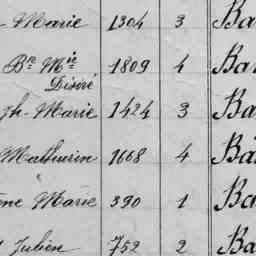 Marie 1304 3 Ba
Bn Mie 1809 4 Ba
Désiré
ph-Marie 1424 3 Ba
Mathurin 1668 4 Ba
ne Marie 390 1 Ba
Julien 752 2 Ba